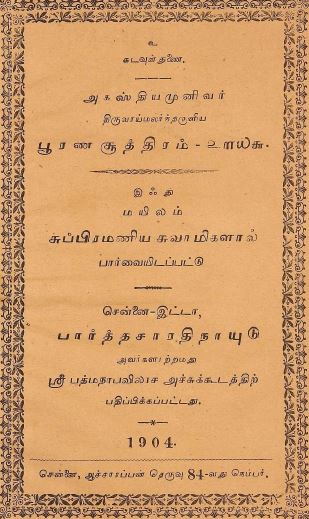 உ
கடவுள்துணை.
அகஸ்தியமுனிவர்
திருவாய்மலர்ந்தருளிய
பூரணசூத்திரம் - உ௱௰௬.
இஃது
மயிலம்
சுப்பிரமணிய சுவாமிகளால்
பார்வையிடப்பட்டு
சென்னை-இட்டா,
பார்த்தசாரதிநாயுடு
அவர்களாற்றமது
ஸ்ரீ பத்மநாபவிலாச அச்சுக்கூடத்திற்
பதிப்பிக்கப்பட்டது.
1904.
சென்னை, ஆச்சாரப்பன் தெருவு 84-வது நெம்பர்.